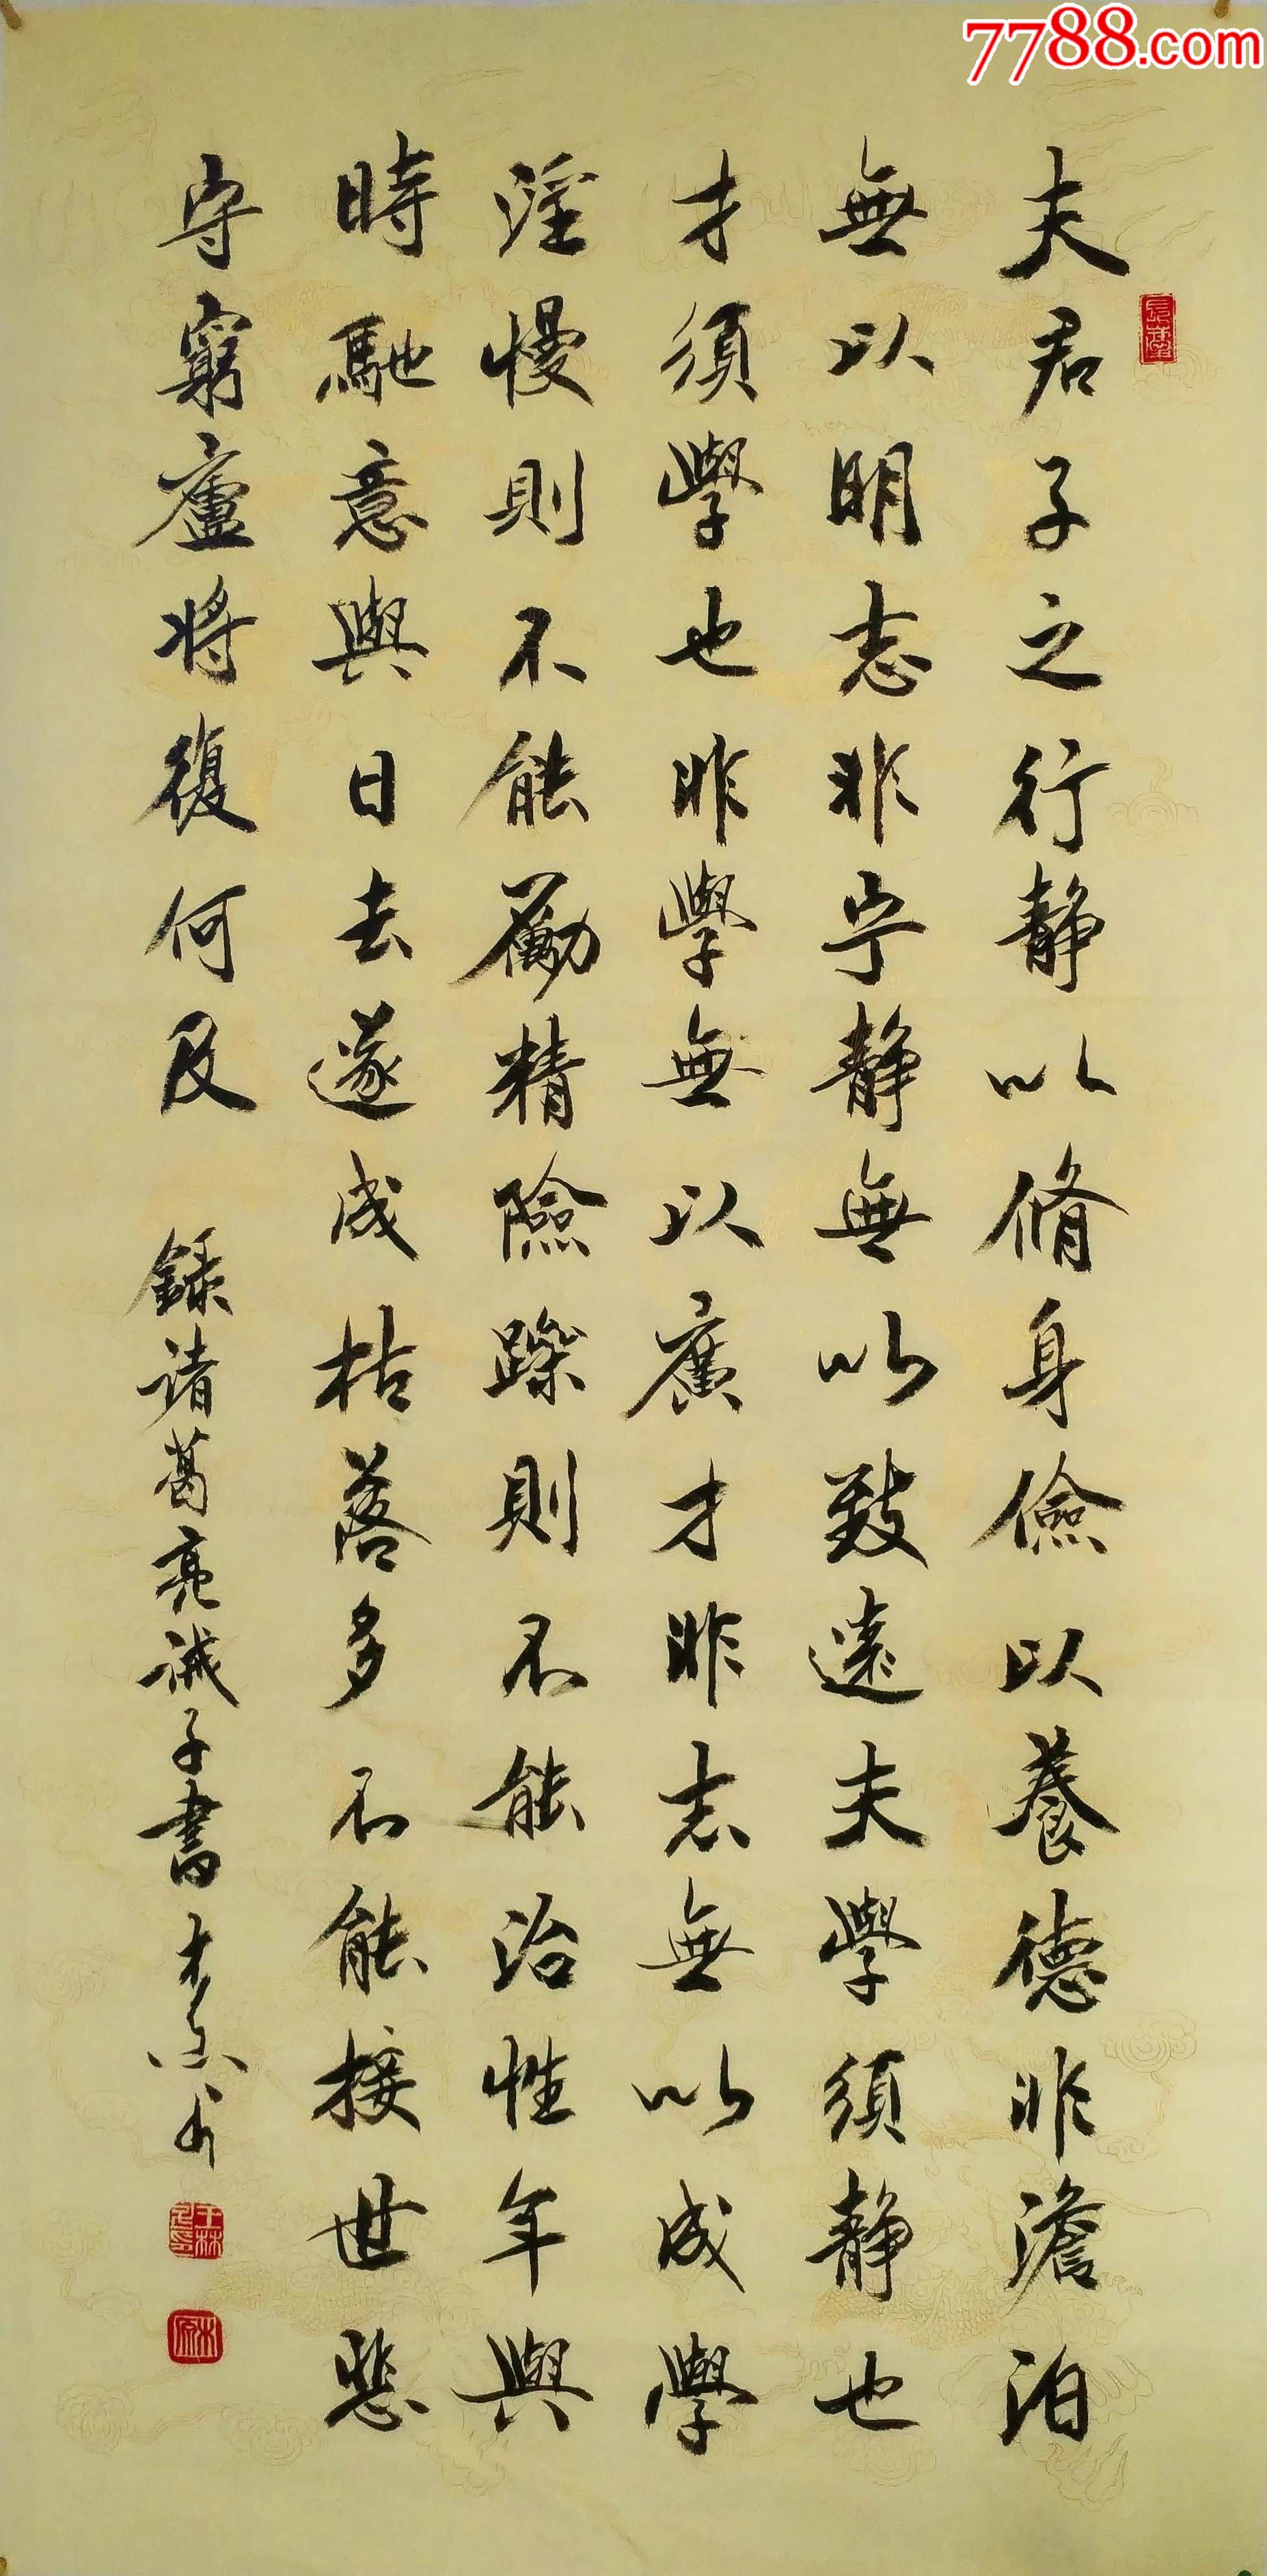 7788.com
夫君子之行静以脩身儉以養德非澹泊
無以明志非宁静無以致遠夫學須静也
才須學也非學無以廣才非志無以成學
淫慢則不能勵精險躁則不能治性年與
時馳意與日去遂成枯落多不能接世悲
守窮廬將復何及 錄諸葛亮誡子書